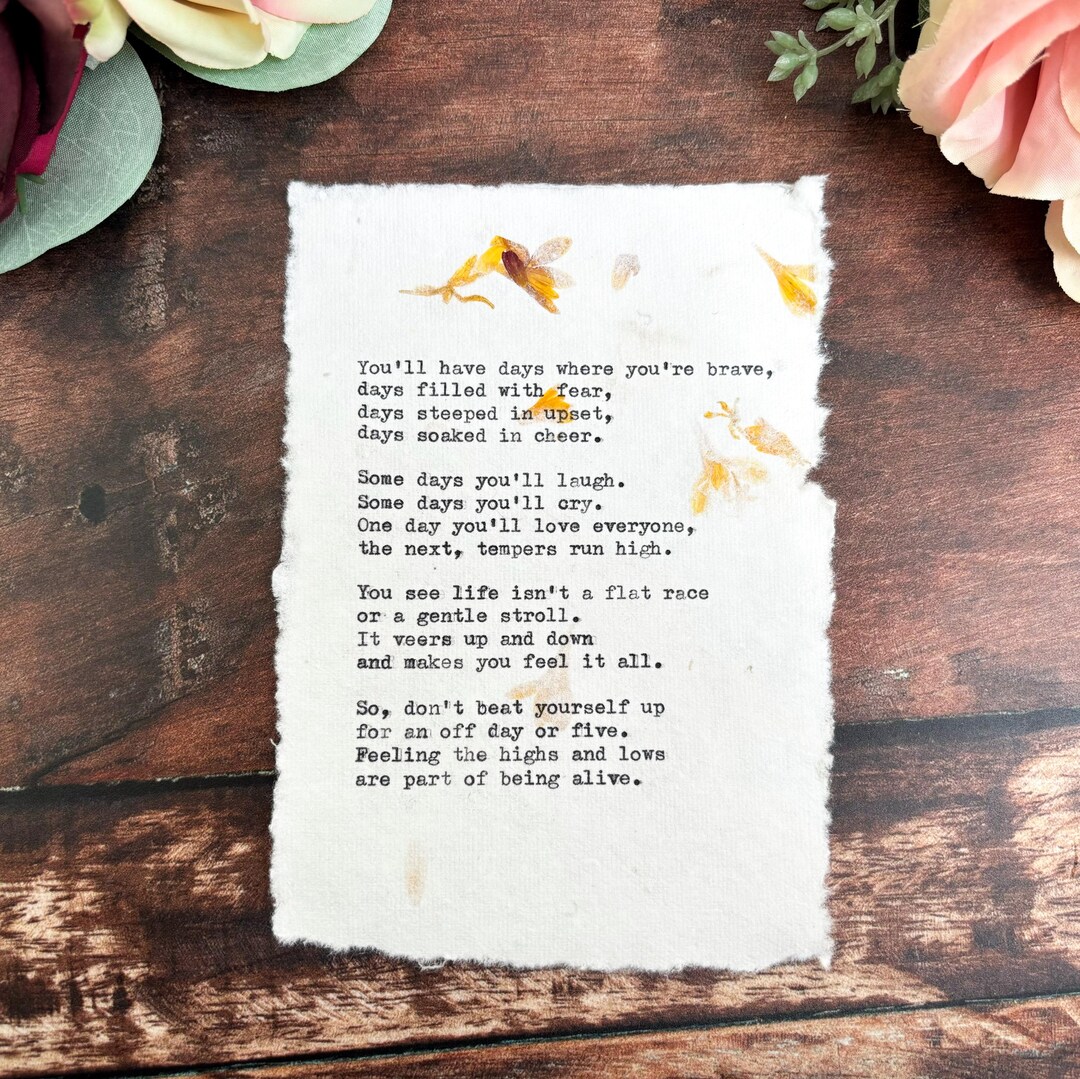 You'll have days where you're brave,
days filled with fear,
days steeped in upset,
days soaked in cheer.
Some days you'll laugh.
Some days you'll cry.
One day you'll love everyone,
the next, tempers run high.
You see life isn't a flat race
or a gentle stroll.
It veers up and down
and makes you feel it all.
So, don't beat yourself up
for an off day or five.
Feeling the highs and lows
are part of being alive.